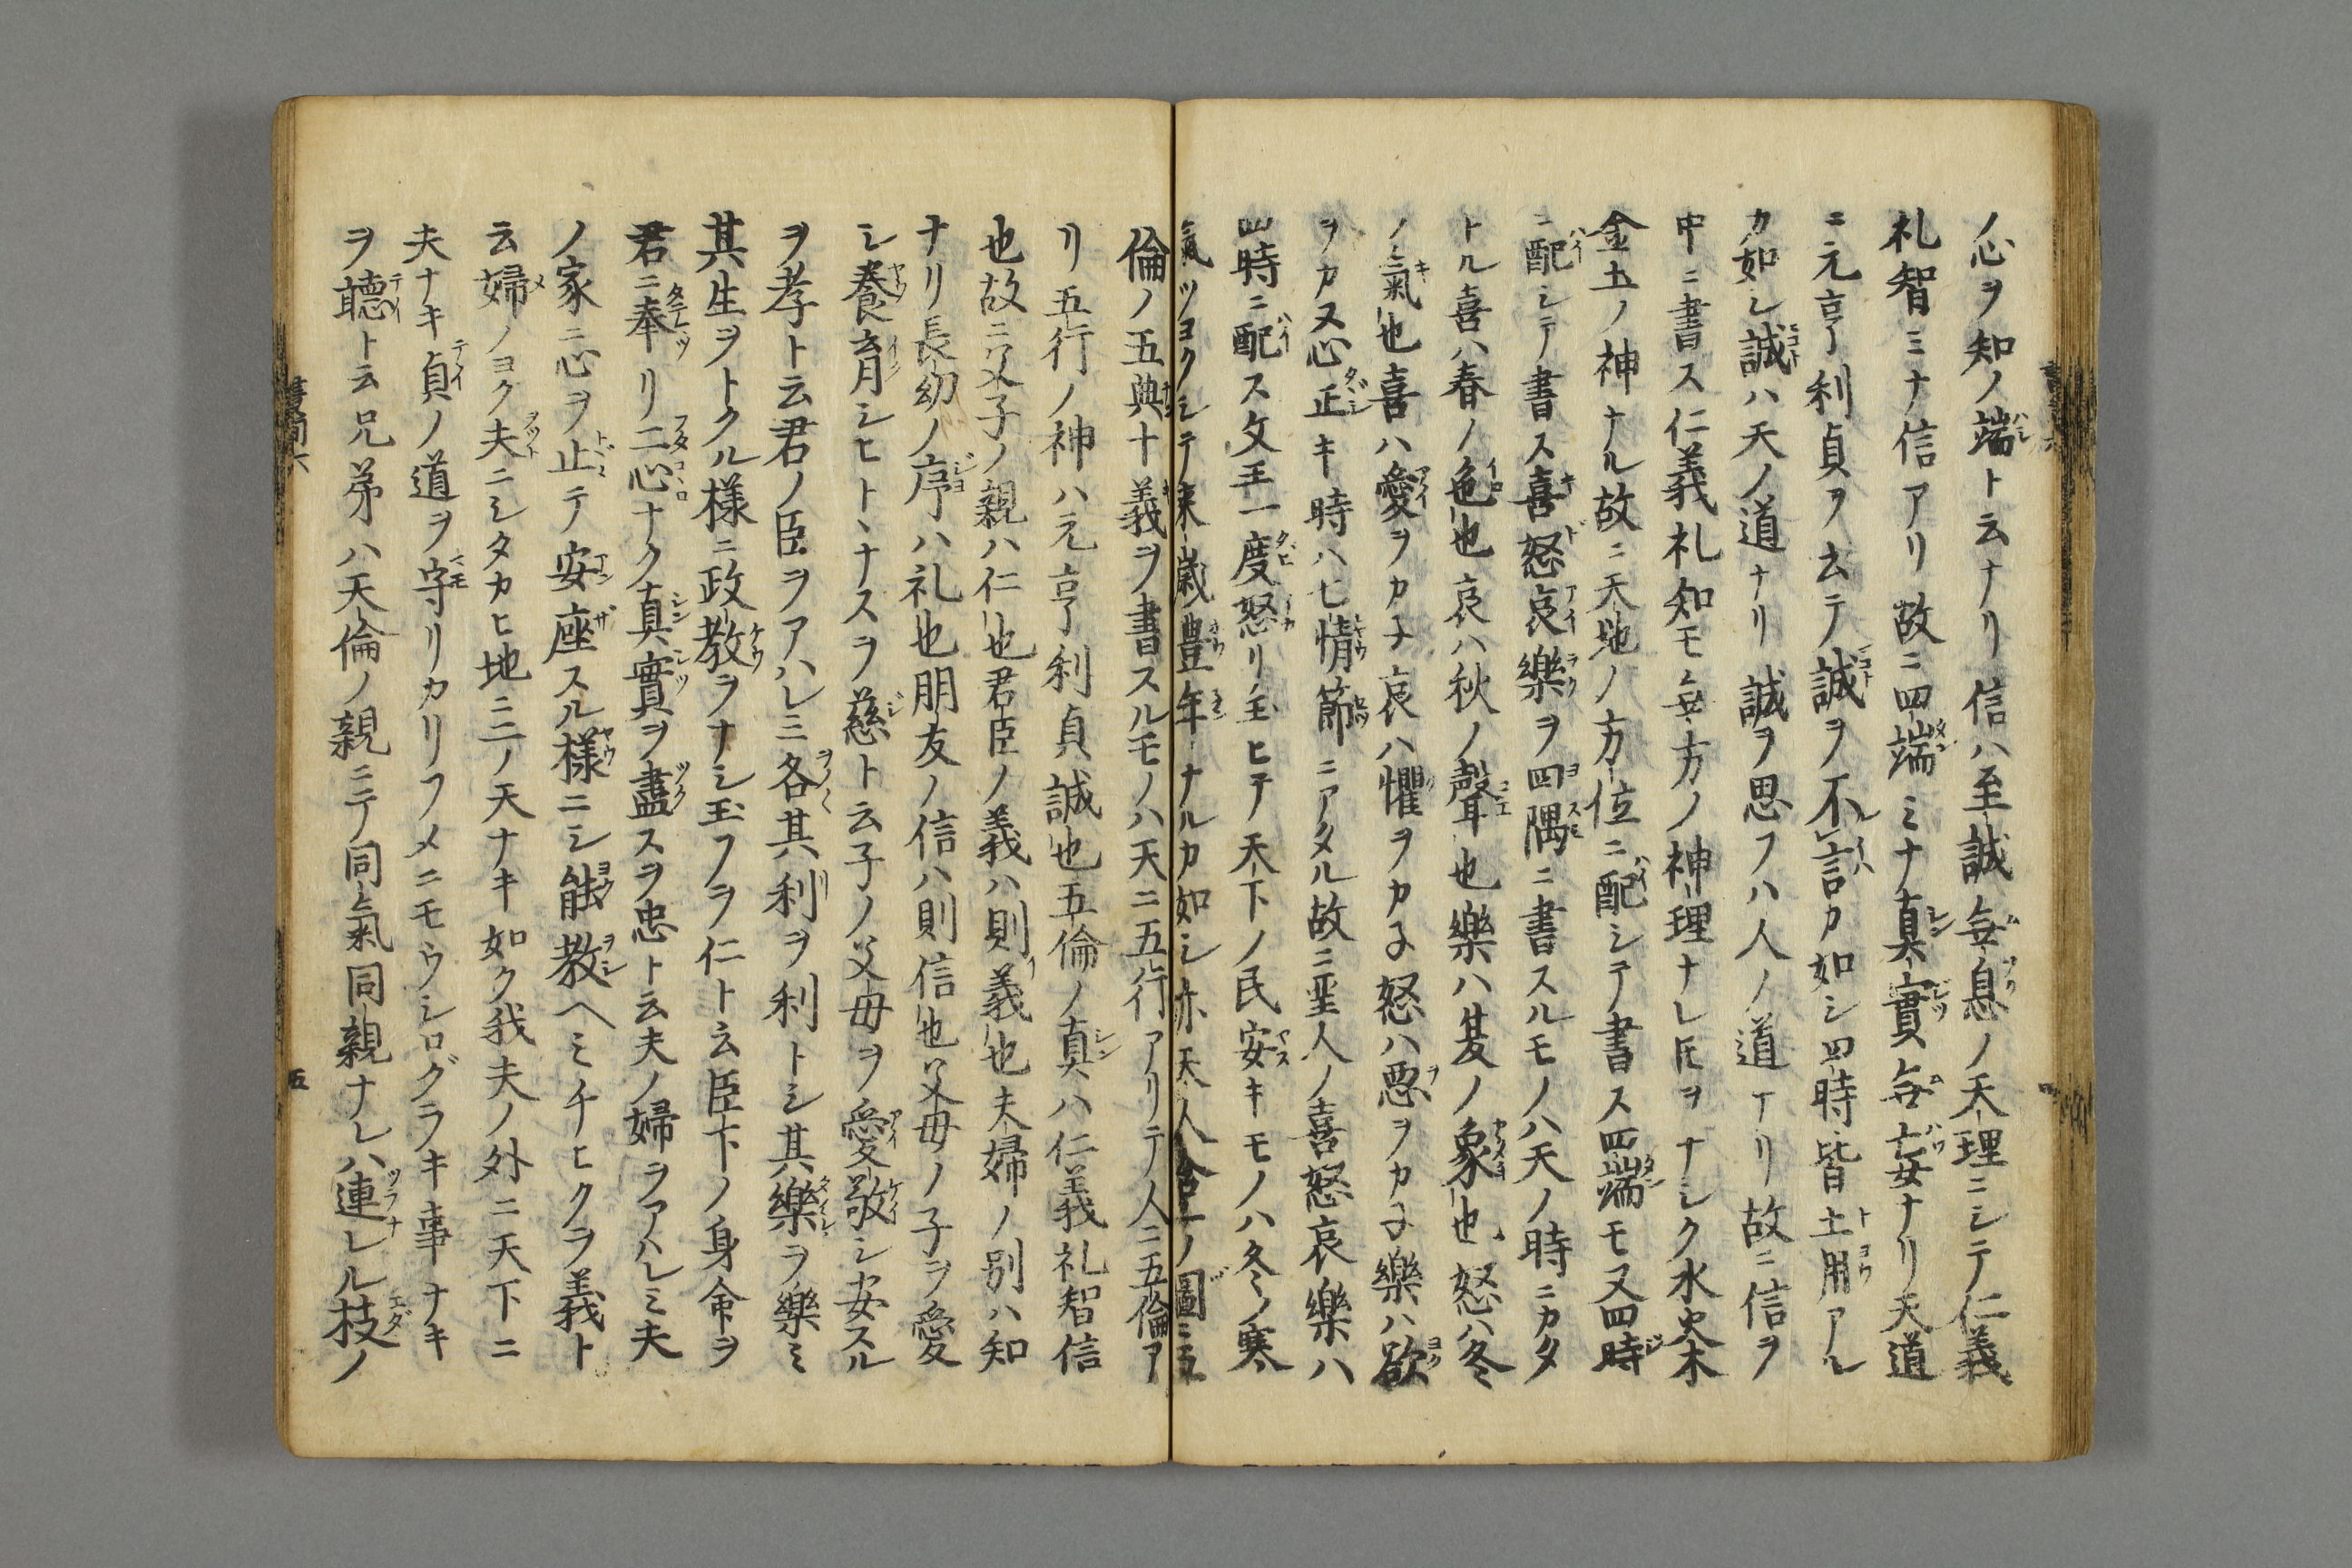 ノ心ヲ知ノ端ト云ナリ信ハ至誠無息ノ天理ニシテ仁義
礼智ミナ信アリ故ニ四端ミナ真實無妄ナリ天道
ニ元亨利貞ヲ云テ誠ヲ不言カ如シ四時皆土用アル
カ如シ誠ハ天ノ道ナリ誠ヲ思フハ人ノ道ナリ故ニ信ヲ
中ニ書ス仁義礼知モ無方ノ神理ナレ𪜈ヲナシク水火木
金土ノ神ナル故ニ天地ノ方位ニ配シテ書ス四端モ又四時
ニ配シテ書ス喜怒哀樂ヲ四隅ニ書スルモノハ天ノ時ニカタ
トル喜ハ春ノ色也哀ハ秋ノ聲也樂ハ夏ノ象也怒ハ冬
ノ氣也喜ハ愛ヲカネ哀ハ懼ヲカネ怒ハ悪ヲカネ樂ハ欲
ヲカヌ心正キ時ハ七情節ニアタル故ニ聖人ノ喜怒哀樂ハ
四時ニ配ス文王一度怒リ玉ヒテ天下ノ民安キモノハ冬ノ寒
氣ツヨクシテ来歳豊年ナルカ如シ亦天人合一ノ圖ニ五
倫ノ五典十義ヲ書スルモノハ天ニ五行アリテ人ニ五倫ア
リ五行ノ神ハ元亨利貞誠也五倫ノ真ハ仁義礼智信
也故ニ父子ノ親ハ仁也君臣ノ義ハ則義也夫婦ノ別ハ知
ナリ長幼ノ序ハ礼也朋友ノ信ハ則信也父母ノ子ヲ愛
シ養育シヒトヽナスヲ慈ト云子ノ父母ヲ愛敬シ安スル
ヲ孝ト云君ノ臣ヲアハレミ各其利ヲ利トシ其樂ヲ樂ミ
其生ヲトクル様ニ政教ヲナシ玉フヲ仁ト云臣下ノ身命ヲ
君ニ奉リ二心ナク真實ヲ盡スヲ忠ト云夫ノ婦ヲアハレミ夫
ノ家ニ心ヲ止テ安座スル様ニシ能教ヘミチヒクヲ義ト
云婦ノヨク夫ニシタカヒ地ニ二ノ天ナキ如ク我夫ノ外ニ天下ニ
夫ナキ貞ノ道ヲ守リカリフメニモウシログラキ事ナキ
ヲ聴ト云兄弟ハ天倫ノ親ニテ同氣同親ナレハ連レル枝ノ
書簡六
五